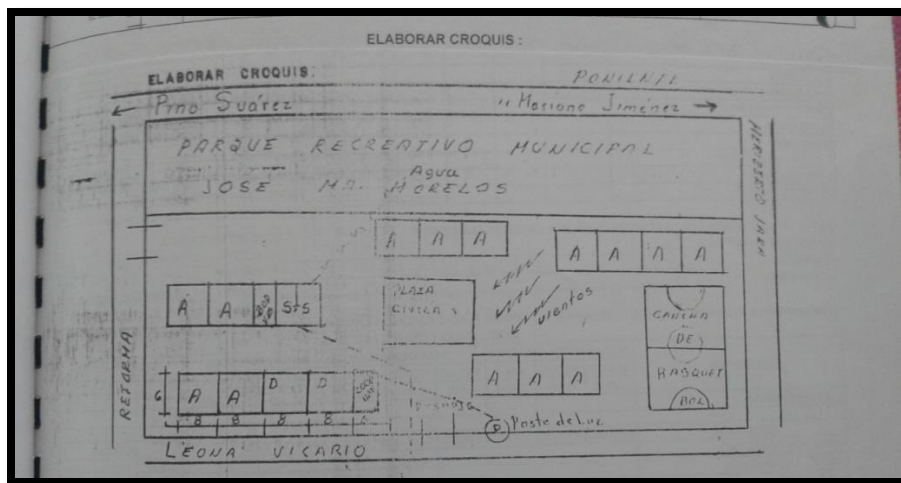 ELABORAR CROQUIS :
ELABORAR CROQUIS:
PONIENTE
Pino Suárez
Mariano Jiménez
PARQUE RECREATIVO MUNICIPAL
Agua
JOSE MA. MORELOS
A A A
A A A A
A A S S
PLAZA
CIVICA
vientos
CANCHA
DE
BASQUET
BOL
RETORNA
6
A A D D
A A A
8 8 8 8
P
Poste de luz
LEONA VICARIO